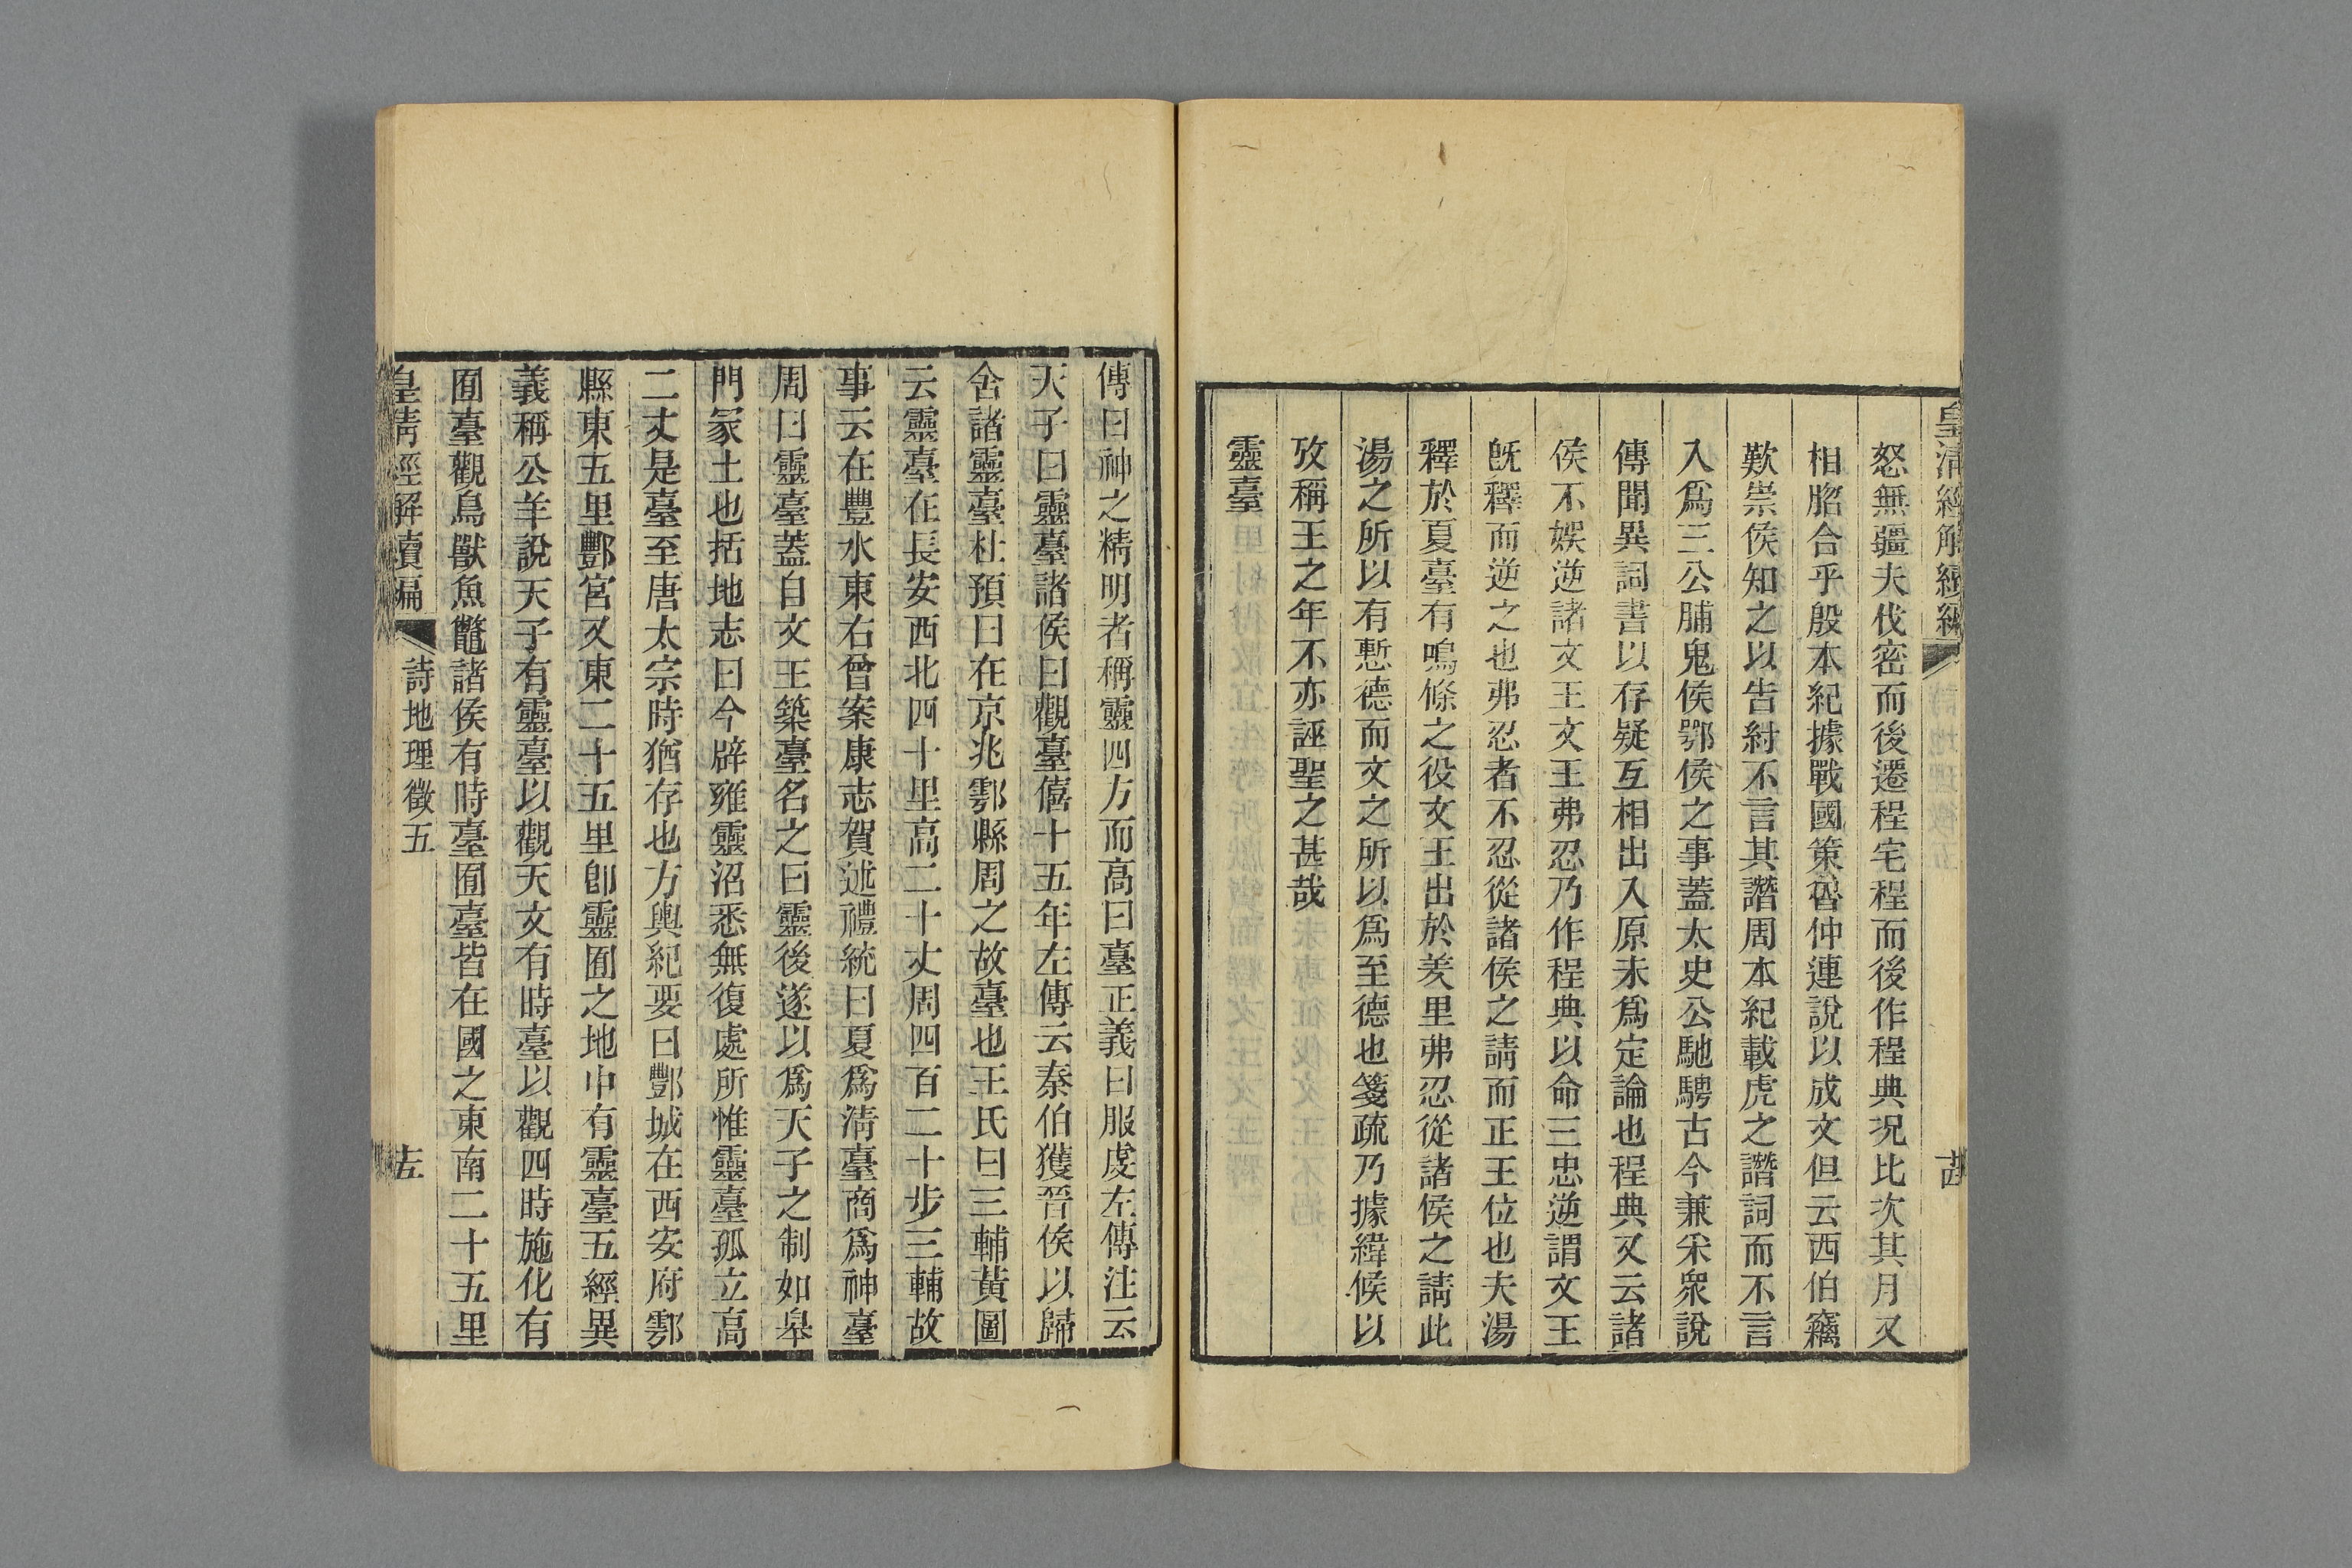 皇清經解續編 詩地理徵五 古
怒無疆夫伐密而後遷程宅程而後作程典況比次其月又
相脗合乎殷本紀據戰國策魯仲連說以成文但云西伯竊
歎崇侯知之以告紂不言其譖周本紀載虎之譖詞而不言
入爲三公脯鬼侯鄂侯之事蓋太史公馳騁古今兼采衆說
傳聞異詞書以存疑互相出入原未爲定論也程典又云諸
侯不娛逆諸文王文王弗忍乃作程典以命三忠逆謂文王
旣釋而逆之也弗忍者不忍從諸侯之請而正王位也夫湯
釋於夏臺有鳴條之役文王出於羑里弗忍從諸侯之請此
湯之所以有慙德而文之所以爲至德也箋疏乃據緯候以
攷稱王之年不亦誣聖之甚哉
靈臺
傳曰神之精明者稱靈四方而高曰臺正義曰服虔左傳注云
天子曰靈臺諸侯曰觀臺僖十五年左傳云秦伯獲晉侯以歸
舍諸靈臺杜預曰在京兆鄠縣周之故臺也王氏曰三輔黃圖
云靈臺在長安西北四十里高二十丈周四百二十步三輔故
事云在豐水東右曾案康志賀述禮統曰夏爲淸臺商爲神臺
周曰靈臺蓋自文王築臺名之曰靈後遂以爲天子之制如皋
門冢土也括地志曰今辟雍靈沼悉無復處所惟靈臺孤立高
二丈是臺至唐太宗時猶存也方輿紀要曰酆城在西安府鄠
縣東五里酆宮又東二十五里卽靈囿之地中有靈臺五經異
義稱公羊說天子有靈臺以觀天文有時臺以觀四時施化有
囿臺觀鳥獸魚鼈諸侯有時臺囿臺皆在國之東南二十五里
皇淸經解續編 詩地理徵五 去